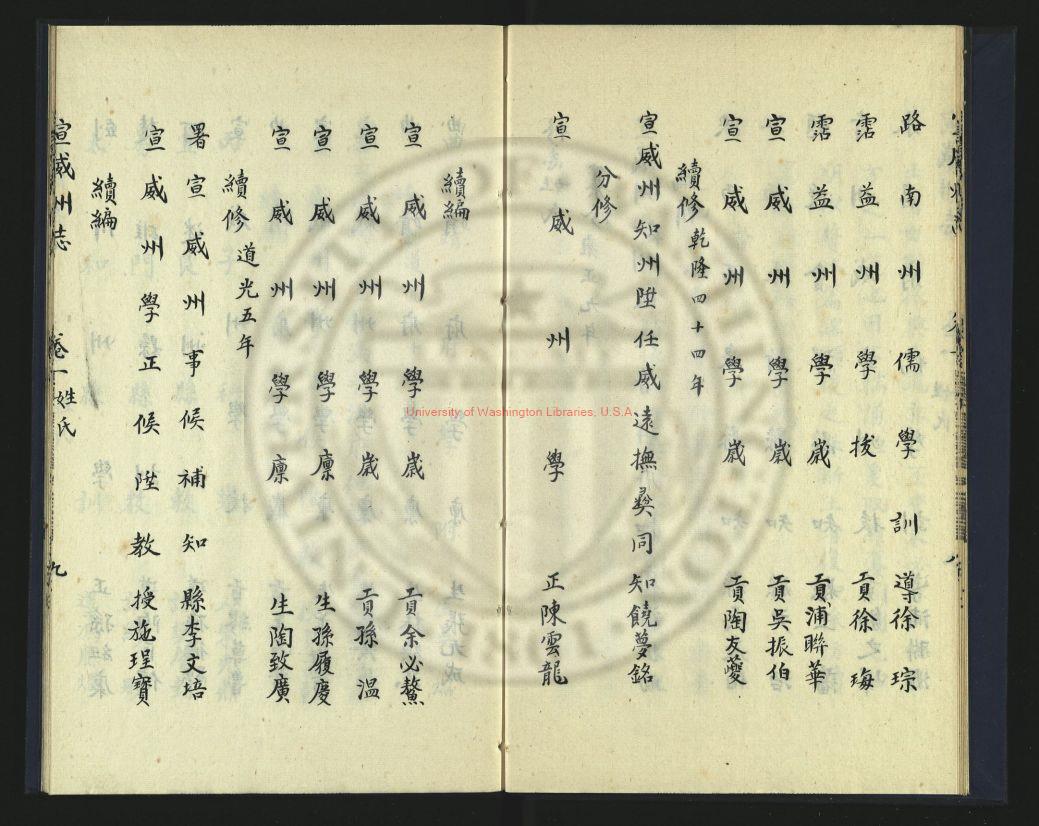 路南州儒學訓導徐琮
霑益州學拔貢徐珻
霑益州學歲貢浦聯華
宣威州學歲貢吳振伯
宣威州學歲貢陶友夔
續修乾隆四十四年
宣威州知州陞任威遠撫彝同知饒夢銘
分修
宣威州學正陳雲龍
續編
宣威州學歲貢余必鰲
宣威州學歲貢孫溫
宣威州學廩生孫履慶
宣威州學廩生陶致廣
續修道光五年
署宣威州事候補知縣李文培
宣威州學正候陞教授施珵寶
續編
宣威州志 卷一姓氏 九
University of Washington Libraries, U.S.A.